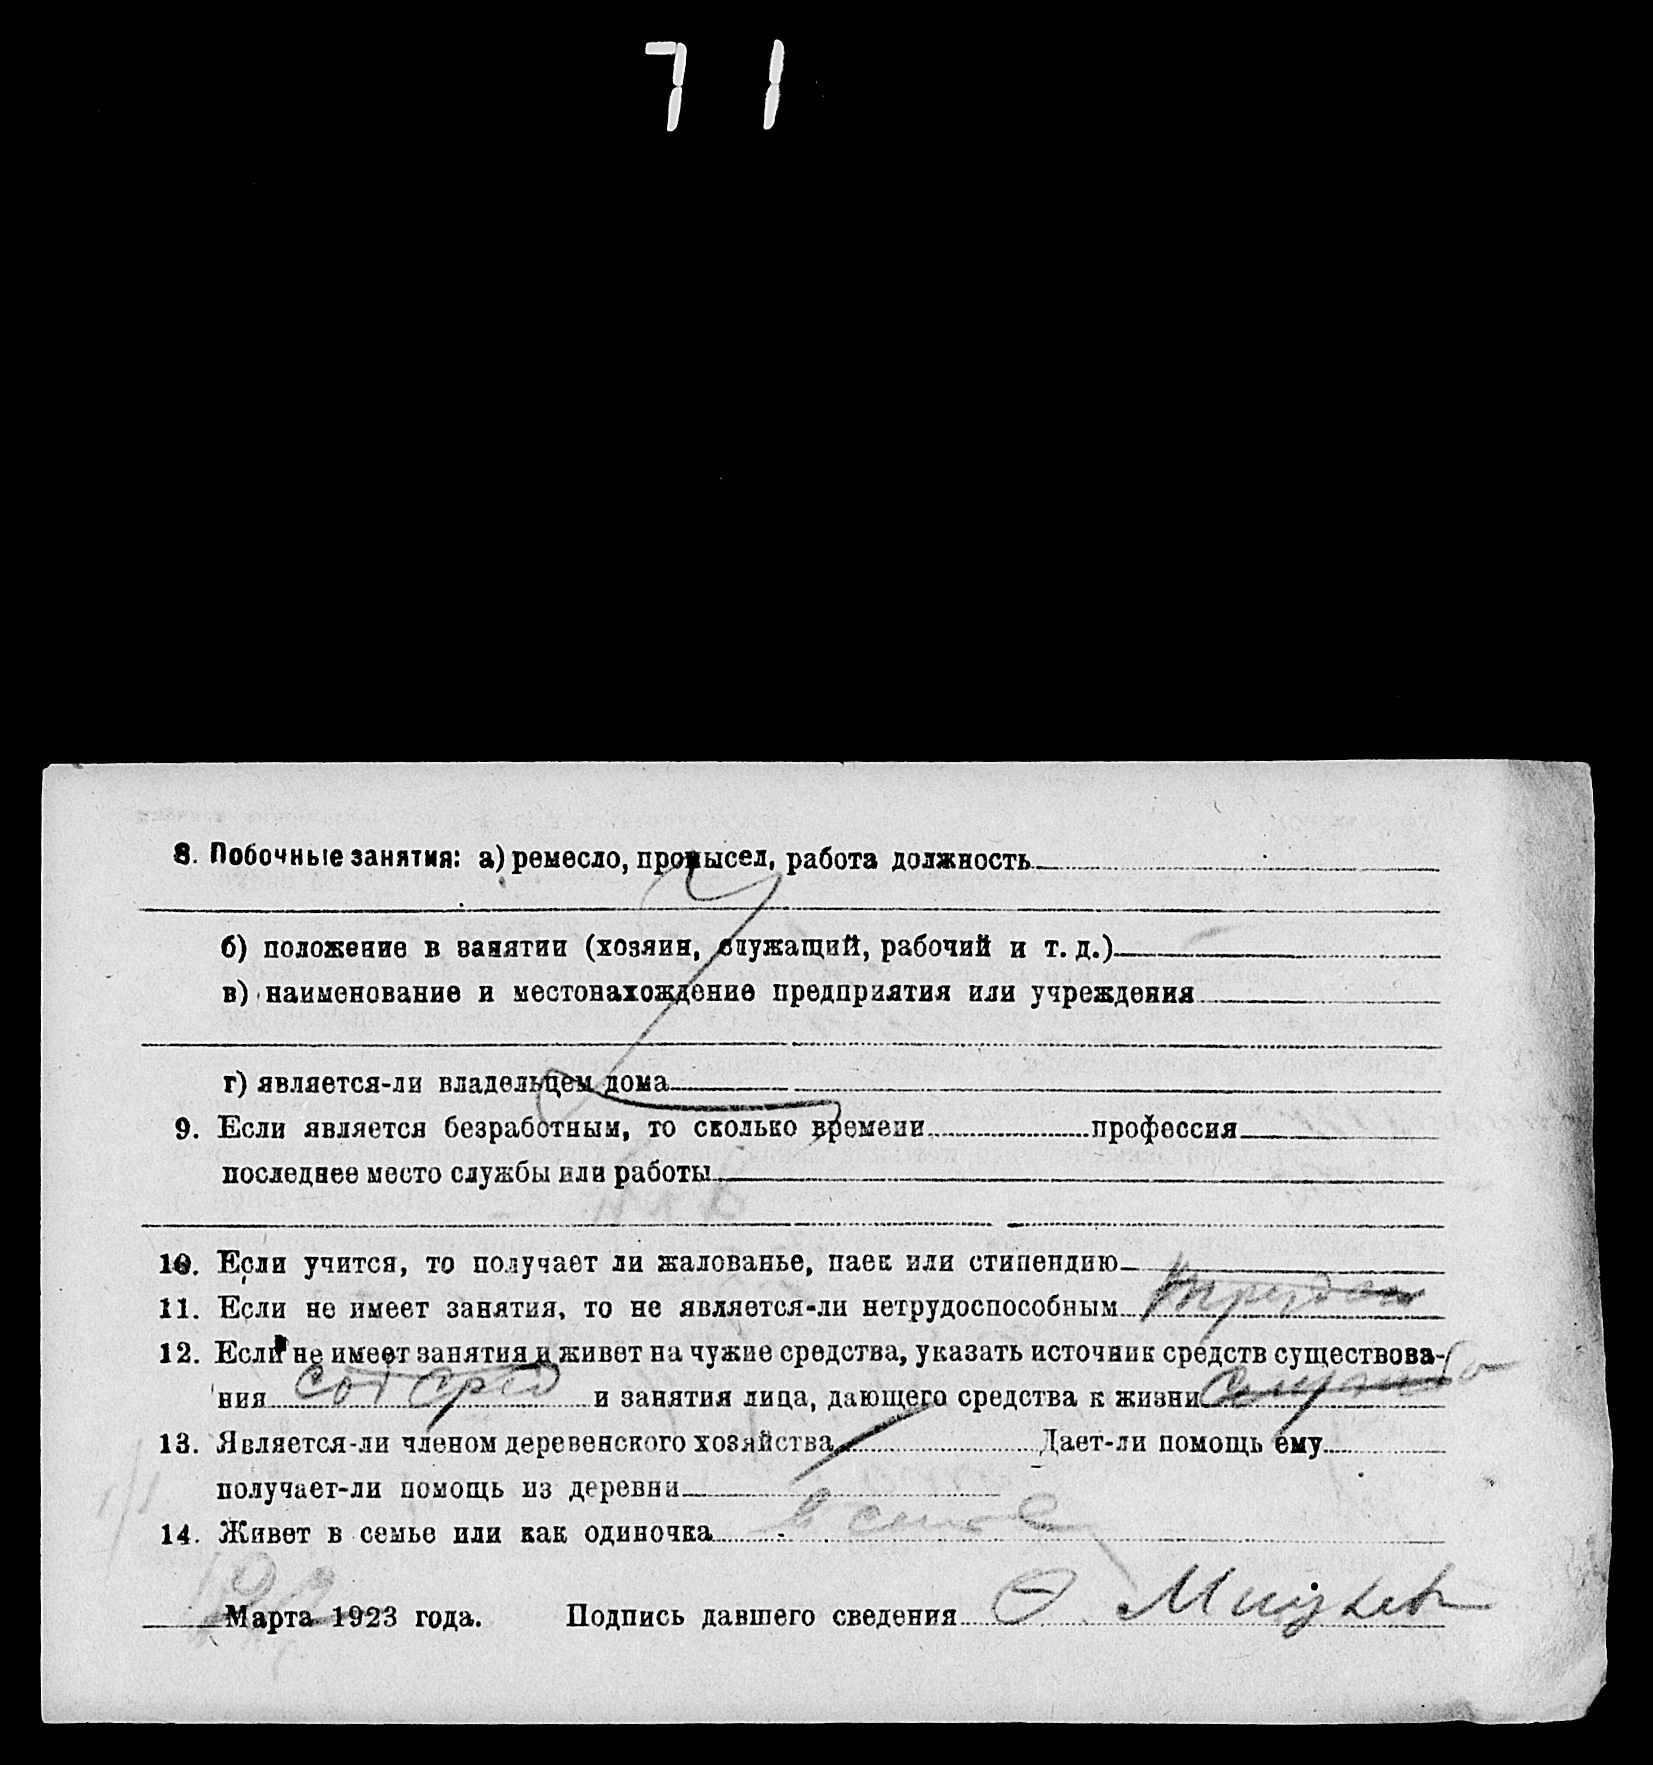 71
8. Побочные занятия: а) ремесло, промысел, работа должность
б) положение в занятии (хозяин, служащий, рабочий и т. д.)
в) наименование и местонахождение предприятия или учреждения
г) является-ли владельцем дома
9. Если является безработным, то сколько времени профессия
последнее место службы или работы
10. Если учится, то получает ли жалованье, паек или стипендию
11. Если не имеет занятия, то не является-ли нетрудоспособным
12. Если не имеет занятия и живет на чужие средства, указать источник средств существова-
ния и занятия лица, дающего средства к жизни служба
13. Является-ли членом деревенского хозяйства Дает-ли помощь ему
получает-ли помощь из деревни
14. Живет в семье или как одиночка в семье
Марта 1923 года. Подпись давшего сведения